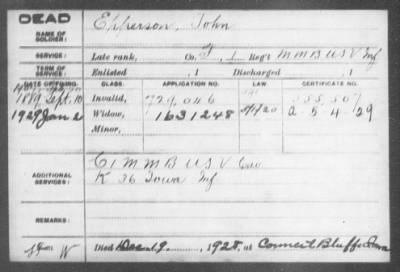 DEAD
NAME OF SOLDIER: Epperson, John
SERVICE: Late rank, Co. F, 1 Reg't M M B U S V Inf
TERM OF SERVICE: Enlisted , 1 Discharged , 1
DATE OF FILING. CLASS. APPLICATION NO. LAW. CERTIFICATE NO.
1889 Sept. 10 Invalid, 729,046 585,507
1929 Jan 2 Widow, 1631248 A-2-5-4-29
Minor,
ADDITIONAL SERVICES: C, 1 M M B U S V Cav
K 36 Iowa Inf
REMARKS:
W Died Dec 19, 1928, at Council Bluffs Iowa